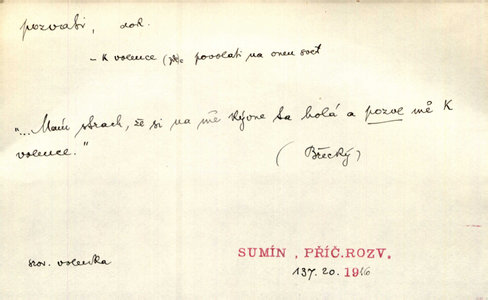 pozvati, dok.
– K volence povolati na onen svět
"... Mám strach, že si na mě kývne ta bolá a pozve mě K
volence."
(Břecký)
srov. volenka
SUMÍN, PŘÍČ. ROZV.
137.20. 1916